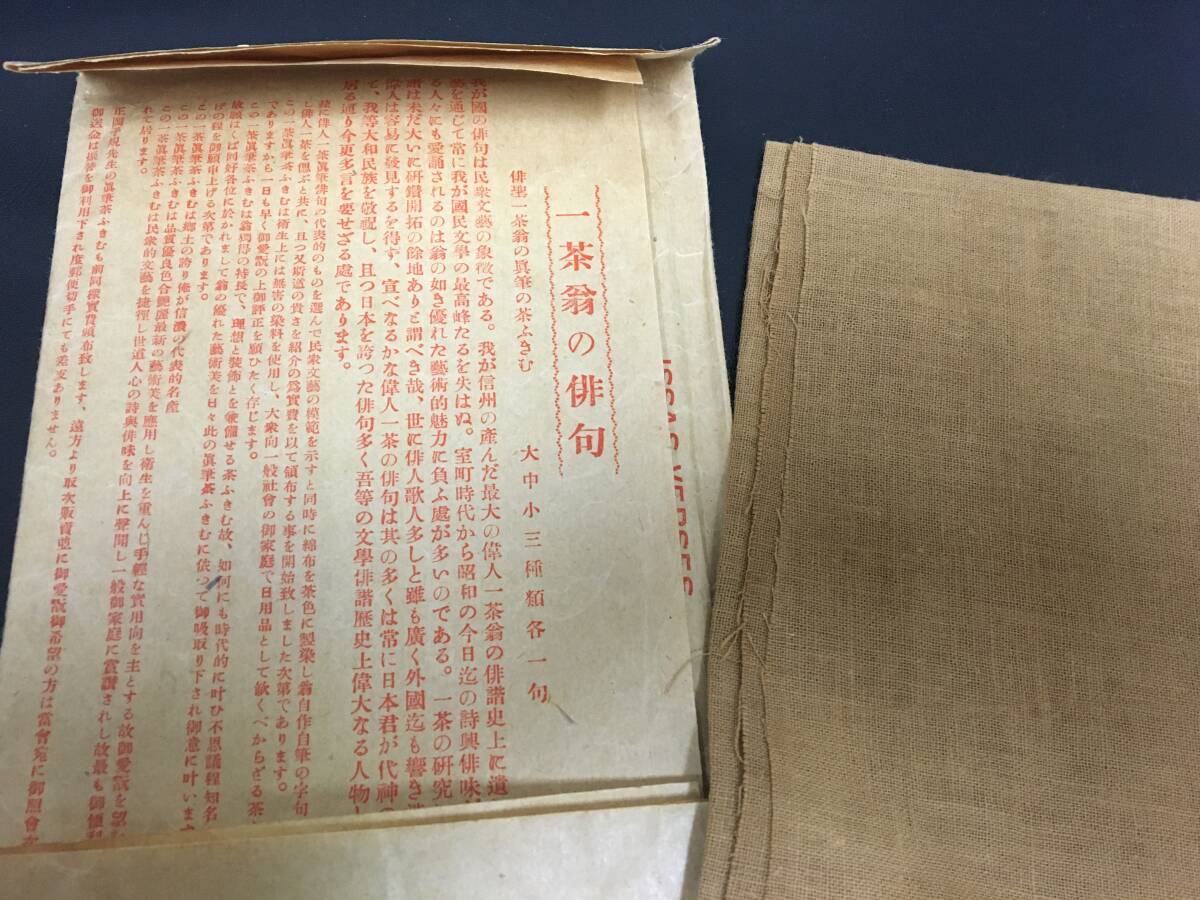 一茶翁の俳句
俳聖一茶翁の眞筆の茶ふきむ　大中小三種類各一句
我が國の俳句は民衆文藝の象徴である。我が信州の產んだ最大の偉人一茶翁の俳諧史上に遺
を通じて常に我が國民文學の最高峰たるを失はぬ。室町時代から昭和の今日迄の詩興俳味
る人々にも愛誦されるのは翁の如き優れた藝術的魅力に負ふ處が多いのである。一茶の研究
諧は未だ大いに研鑽開拓の餘地ありと謂べき哉、世に俳人歌人多しと雖も廣く外國迄も響き
偉人は容易に發見するを得ず、宣べなるかな偉人一茶の俳句は其の多くは常に日本君が代神の
て、我等大和民族を敬祝し、且つ日本を誇つた俳句多く吾等の文學俳諧歷史上偉大なる人物
居る通り今更多言を要せざる處であります。
茲に俳人一茶眞筆俳句の代表的のものを選んで民衆文藝の模範を示すと同時に綿布を茶色に製染し翁自作自筆の字句
し俳人一茶を偲ぶと共に、且つ又斯道の貴さを紹介の爲實費を以て領布する事を開始致しました次第であります。
この一茶眞筆茶ふきむは衛生上には無害の染料を使用し、大衆向一般社會の御家庭で日用品として缺くべからざる茶
でありますから一日も早く御愛翫の上御評正を願ひたく存じます。
この一茶眞筆茶ふきむは翁獨得の特長で、理想と裝飾とを兼備せる茶ふきむ故、如何にも時代的に叶ひ不思議程知名
故願はくば同好各位に於かれまして翁の優れた藝術美を日々此の眞筆茶ふきむに依つて御吸取り下され御意に叶います
の程を御願申上げる次第であります。
この一茶眞筆茶ふきむは鄕土の誇り俺が信濃の代表的名產
この一茶眞筆茶ふきむは品質優良色合艶麗最新の藝術美を應用し衛生を重んじ手輕な實用向を主とする故御愛翫を望む
この一茶眞筆茶ふきむは民衆的文藝を捷徑し世道人心の詩與俳味を向上に聲聞し一般御家庭に賞讃されし故最も御便利
れて居ります。
正岡子規先生の眞筆茶ふきむも前同樣實費頒布致します、遠方より取次販賣並に御愛翫御希望の方は當會宛に御照會
御送金は振替を御利用下され度郵便切手にても差支ありません。
ISSA'S VERSES